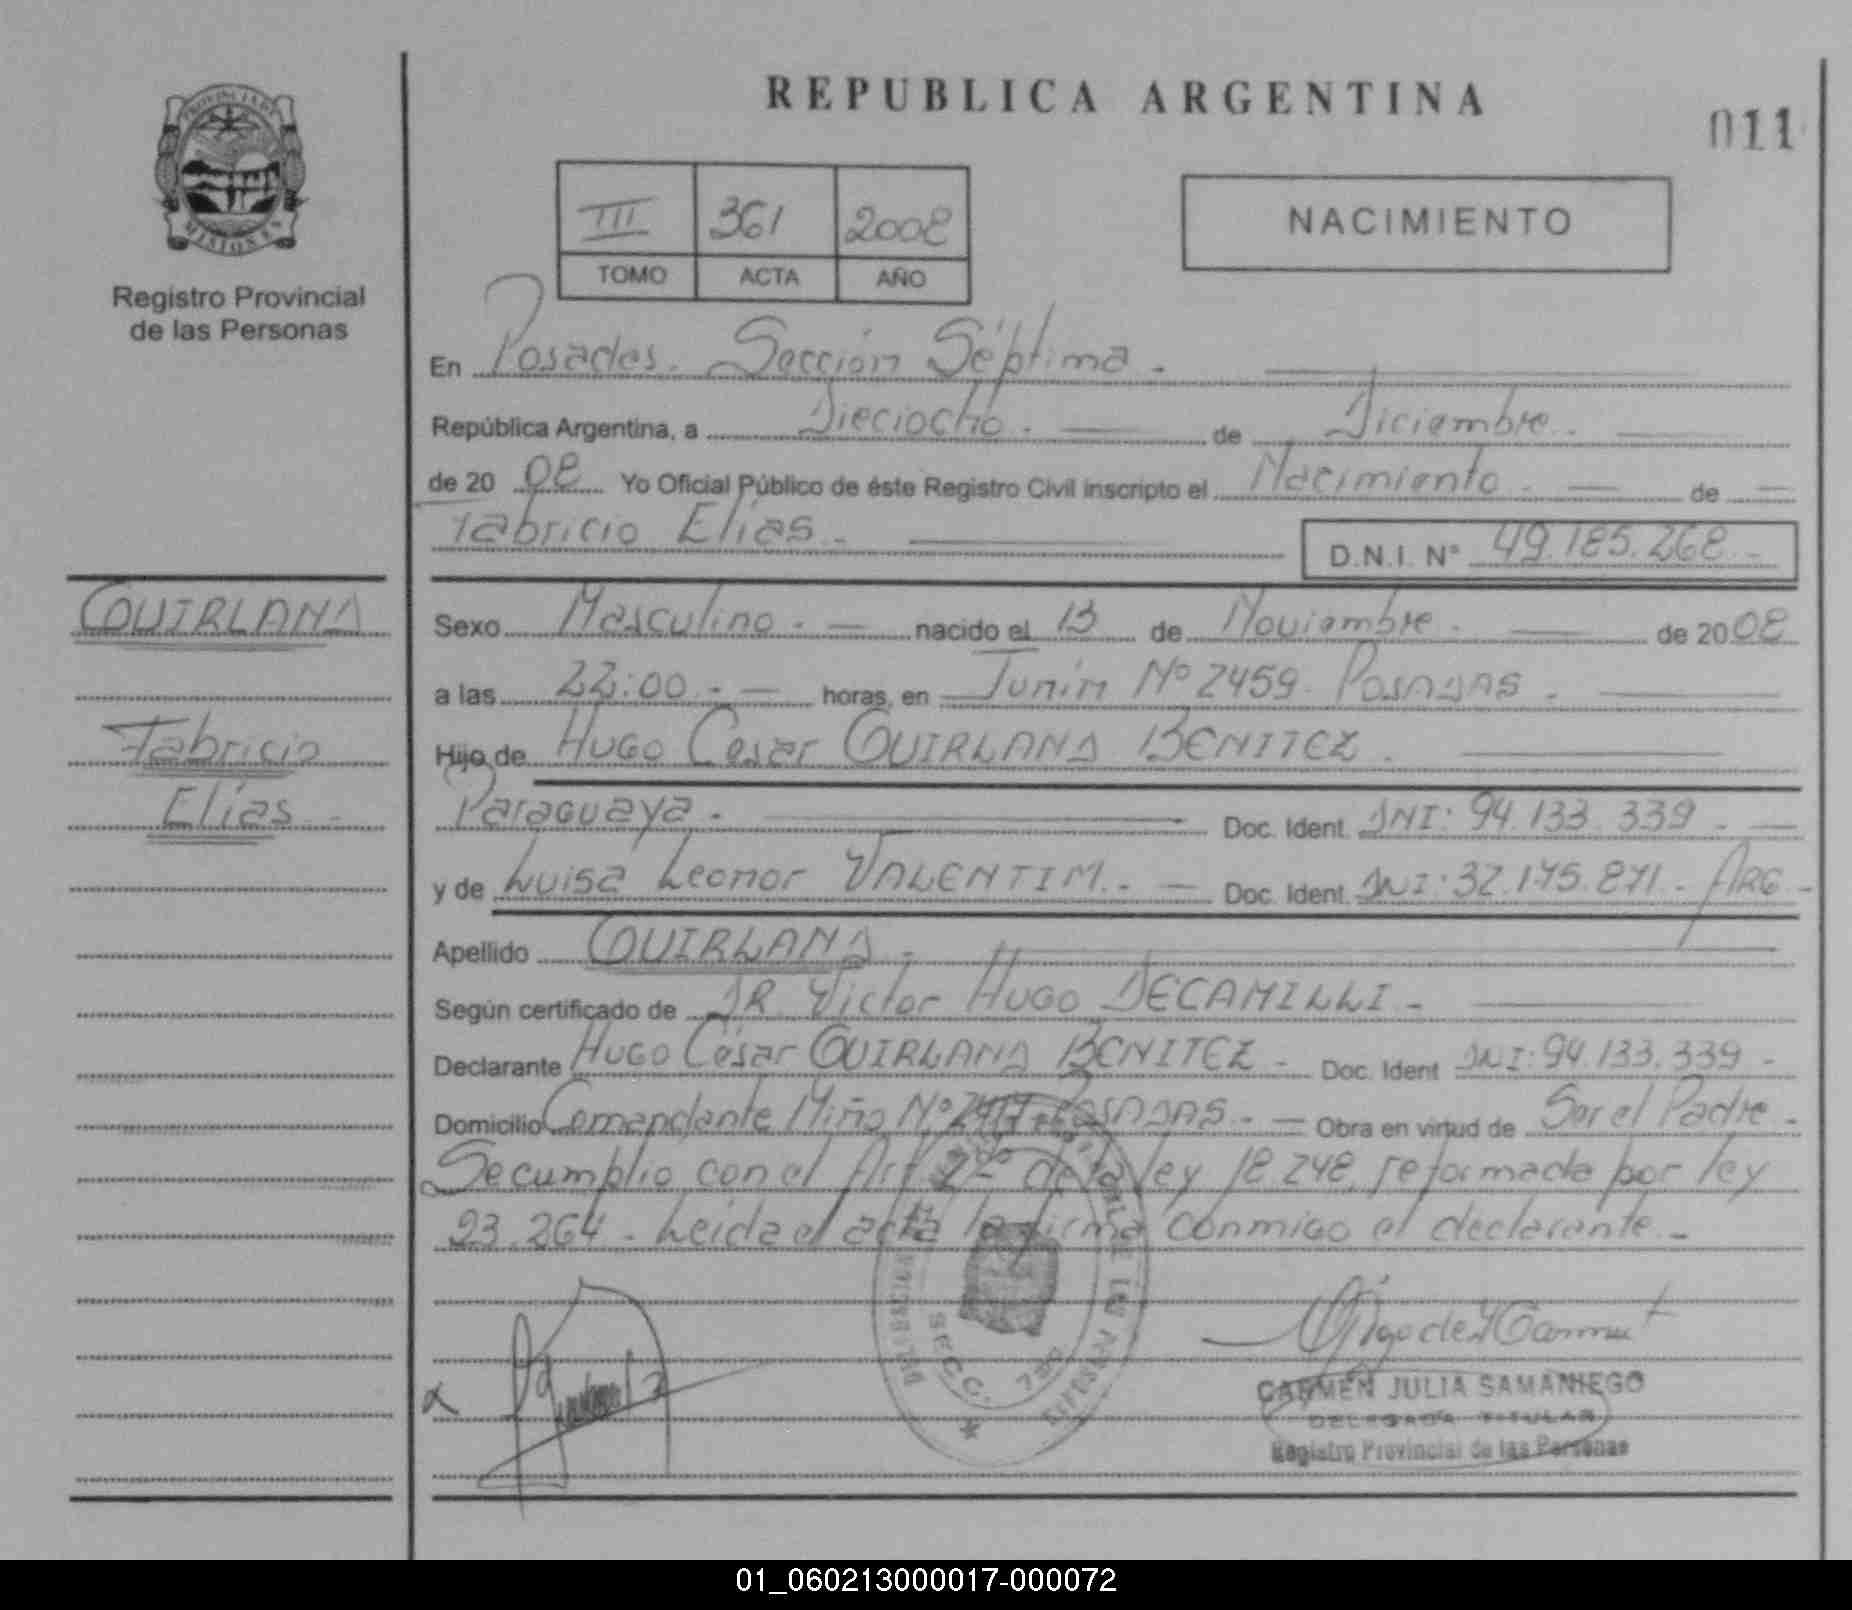 REPUBLICA ARGENTINA
011
PROVINCIA DE
MISIONES
Registro Provincial
de las Personas
III 361 2008
TOMO ACTA AÑO
NACIMIENTO
En Posadas. Sección Séptima.
República Argentina, a Dieciocho. de Diciembre.
de 20 08 Yo Oficial Público de éste Registro Civil inscripto el Nacimiento. de
Fabricio Elías. D.N.I. Nº 49.185.268.-
QUIRLANA
Fabricio
Elías
Sexo Masculino. nacido el 13 de Noviembre. de 20 08
a las 22:00.- horas, en Junín Nº 2459. POSADAS.
Hijo de HUGO Cesar QUIRLANA BENITEZ.
Paraguaya. Doc. Ident. DNI: 94.133.339.-
y de Luisa Leonor VALENTIM.- Doc. Ident. DNI: 32.175.871.- ARG.-
Apellido QUIRLANA.-
Según certificado de DR. Victor HUGO DECAMILLI.-
Declarante HUGO César QUIRLANA BENITEZ.- Doc. Ident DNI: 94.133.339.-
Domicilio Comandante Miño Nº POSADAS.- Obra en virtud de Ser el Padre.-
Se cumplio con el Art. 2º de la ley 18.248, reformada por ley
23.264.- Leida el acta la firma conmigo el declarante.-
DELEGACION
SECC. 7ma
CARMEN JULIA SAMANIEGO
DELEGADA TITULAR
Registro Provincial de las Personas
01_060213000017-000072